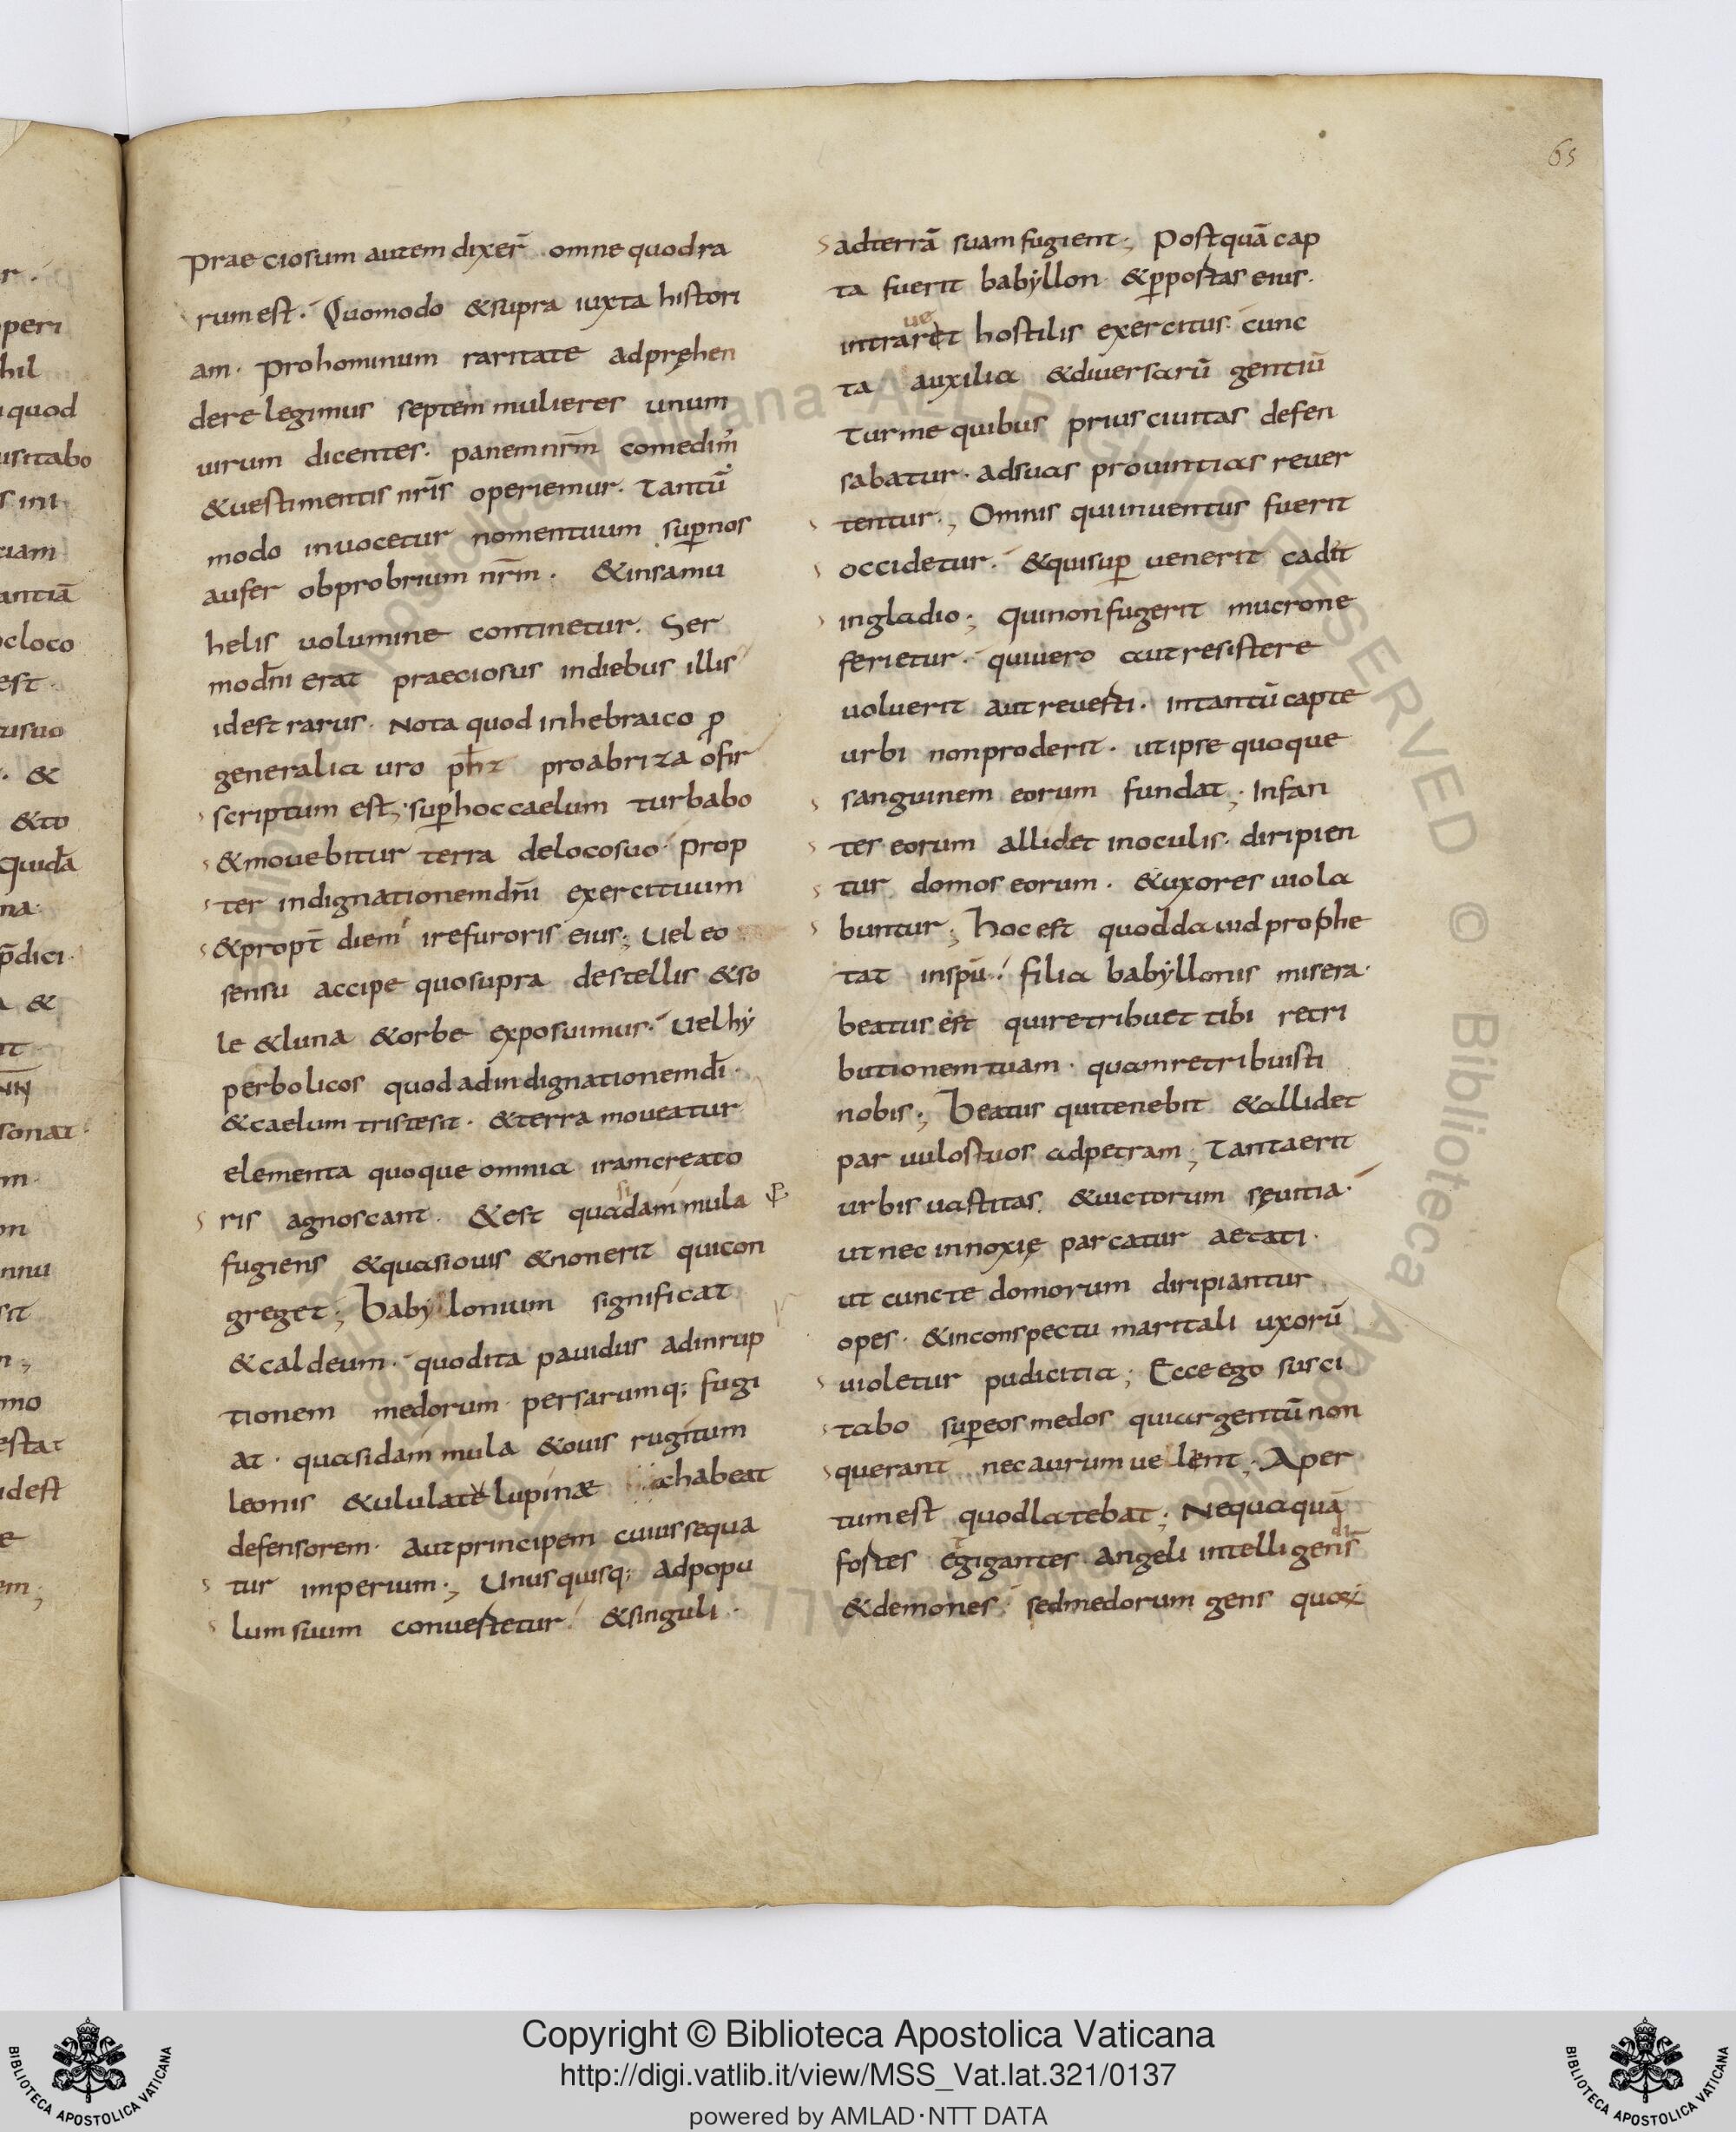 65
Praeciosum autem dixer̄ omne quod ra
rum est. Quomodo & supra iuxta histori
am. Pro hominum raritate adpręhen
dere legimus septem mulieres unum
uirum dicentes. panem nr̄m comedim᾽
& uestimentis nr̄is operiemur. Tantū
modo inuocetur nomen tuum sup̄ nos
aufer obprobrium nr̄m. & in samu
helis uolumine continetur. Ser
mo dn̄i erat praeciosus in diebus illis
id est rarus. Nota quod in hebraico ꝓ
generali auro phz pro abriza ofir
scriptum est; sup̄ hoc caelum turbabo
& mouebitur terra de loco suo. Prop
ter indignationem dn̄i exercituum
& propt̄ diem ire furoris eius; Uel eo
sensu accipe quo supra de stellis & so
le & luna & orbe exposuimus. Uel hẏ
perbolicos quod ad indignationem dī.
& caelum triste sit. & terra moueatur
elementa quoque omnia iram creato
ris agnoscant. & est quasi dammula
fugiens & quasi ouis & non erit qui con
greget; Babẏlonium significat
& caldeum. quod ita pauidus ad inrup
tionem medorum persarumq; fugi
at. quasi dammula & ouis rugitum
leonis & ululatē lupinæ ac habeat
defensorem. Aut principem cuius sequa
tur imperium; Unus quisq; ad popu
lum suum conuertetur. & singuli.
ad terrā suam fugient; Postquā cap
ta fuerit babẏllon & ꝑ portas eius.
intrauerit hostilis exercitus. cunc
ta auxilia & diuersarū gentiū
turme quibus prius ciuitas defen
sabatur. ad suas prouintias reuer
tentur; Omnis qui inuentus fuerit
occidetur. & qui sup̄ uenerit cadit
in gladio; Qui non fugerit mucrone
ferietur. qui uero aut resistere
uoluerit aut reuerti. in tantū capte
urbi non proderit. ut ipse quoque
sanguinem eorum fundat; Infan
tes eorum allidet in oculis. diripien
tur domos eorum. & uxores uiola
buntur; Hoc est quod dauid prophe
tat in spū. filia babẏllonis misera.
beatus est qui retribuet tibi retri
butionem tuam. quam retribuisti
nobis; Beatus qui tenebit & allidet
paruulos tuos ad petram; Tanta erit
urbis uastitas. & uictorum sęuitia.
ut nec innoxię parcatur aetati.
ut cuncte domorum diripiantur
opes. & in conspectu maritali uxorū
uioletur pudicitia; Ecce ego susci
tabo sup̄ eos medos qui argentū non
querant nec aurum uellent; Aper
tum est quod latebat; Nequaquā
fortes & gigantes angeli intelligens
& demones. sed medorum gens quoꝝ
Copyright © Biblioteca Apostolica Vaticana
http://digi.vatlib.it/view/MSS_Vat.lat.321/0137
powered by AMLAD·NTT DATA